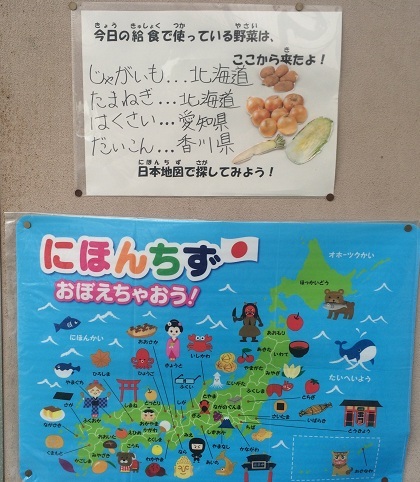 今日の給食で使っている野菜は、
ここから来たよ！
じゃがいも...北海道
たまねぎ...北海道
はくさい...愛知県
だいこん...香川県
日本地図で探してみよう！
にほんちず
おぼえちゃおう！
オホーツクかい
ほっかいどう
にほんかい
たいへいよう
あおもり
あきた
いわて
やまがた
みやぎ
ふくしま
とちぎ
いばらき
さいたま
とうきょう
かながわ
ながの
ぐんま
にいがた
とやま
いしかわ
ふくい
きょうと
おおさか
ひょうご
とっとり
ひろしま
やまぐち
ふくおか
さが
ながさき
くまもと
おおいた
かごしま
えひめ
こうち
とくしま
わかやま
なら
しが
あいち
おきなわ